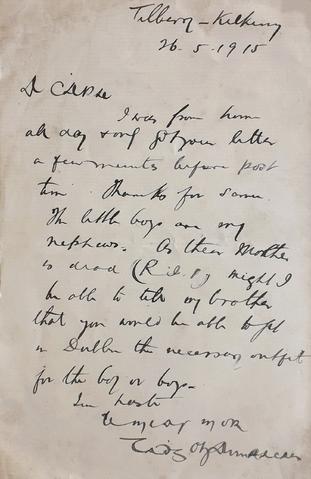 Kilkenny
26.5.1915
I was from home
all day & only got your letter
a few minutes before post
time. Thanks for same.
The little boys are my
nephews. As their Mother
is dead (R.I.P.) might I
be able to tell my brother
that you would be able to get
in Dublin the necessary outfit
for the boy or boys.
In haste
le meas mór
Tadg